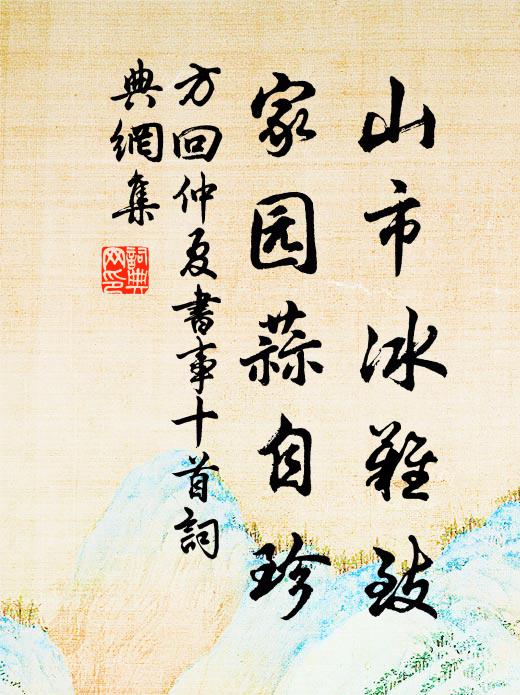 山市冰難致
家园蒜自珍
方回仲夏書事十首詞
典網集
詞典网印